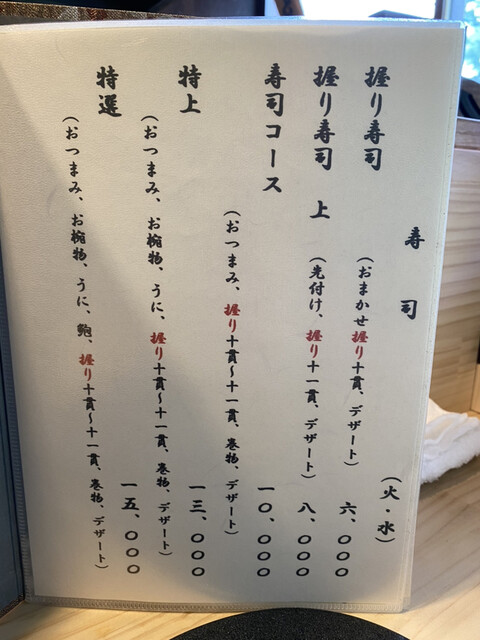 寿司
(火・水)
握り寿司
(おまかせ握り十貫、デザート)
六、〇〇〇
握り寿司 上
(先付け、握り十一貫、デザート)
八、〇〇〇
寿司コース
(おつまみ、握り十貫〜十一貫、巻物、デザート)
一〇、〇〇〇
特上
(おつまみ、お椀物、うに、握り十貫〜十一貫、巻物、デザート)
一三、〇〇〇
特選
(おつまみ、お椀物、うに、鮑、握り十貫〜十一貫、巻物、デザート)
一五、〇〇〇